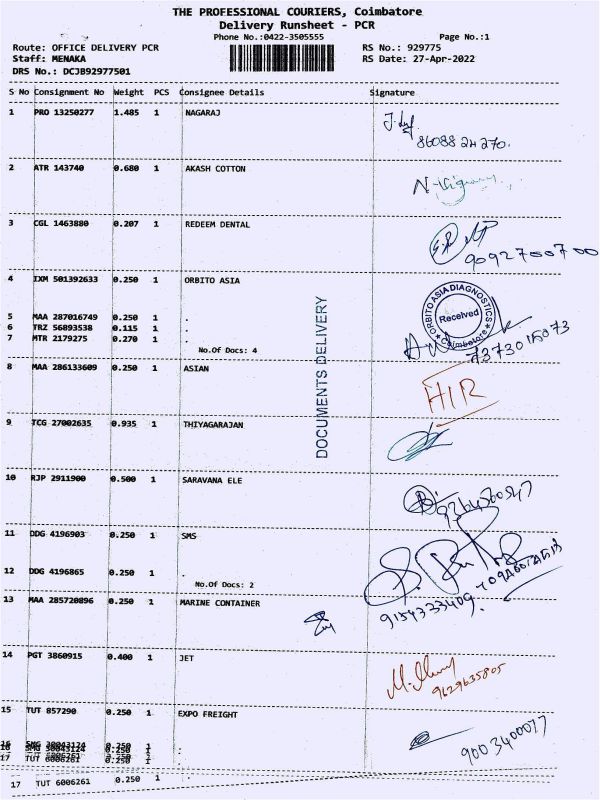 THE PROFESSIONAL COURIERS, Coimbatore
Delivery Runsheet - PCR
Phone No.:0422-3505555
Page No.:1
Route: OFFICE DELIVERY PCR
RS No.: 929775
Staff: MENAKA
RS Date: 27-Apr-2022
DRS No.: DCJB92977501
S No Consignment No Weight PCS Consignee Details Signature
1 PRO 13250277 1.485 1 NAGARAJ
8608824270.
2 ATR 143740 0.680 1 AKASH COTTON
3 CGL 1463880 0.207 1 REDEEM DENTAL
9092700700
4 IXM 501392633 0.250 1 ORBITO ASIA
ORBITO ASIA DIAGNOSTICS
Received
Coimbatore
5 MAA 287016749 0.250 1 .
6 TRZ 56893538 0.115 1 .
7 MTR 2179275 0.270 1 .
7373015073
No.Of Docs: 4
DOCUMENTS DELIVERY
8 MAA 286133609 0.250 1 ASIAN
HIR
9 TCG 27002635 0.935 1 THIYAGARAJAN
10 RJP 2911900 0.500 1 SARAVANA ELE
11 DDG 4196903 0.250 1 SMS
12 DDG 4196865 0.250 1 .
No.Of Docs: 2
9154333409
13 MAA 285720896 0.250 1 MARINE CONTAINER
14 PGT 3860915 0.400 1 JET
9629635805
15 TUT 857290 0.250 1 EXPO FREIGHT
9003400077
16 SMG 30043124 0.250 1 .
17 TUT 6006261 0.250 1 .
17 TUT 6006261 0.250 1 .